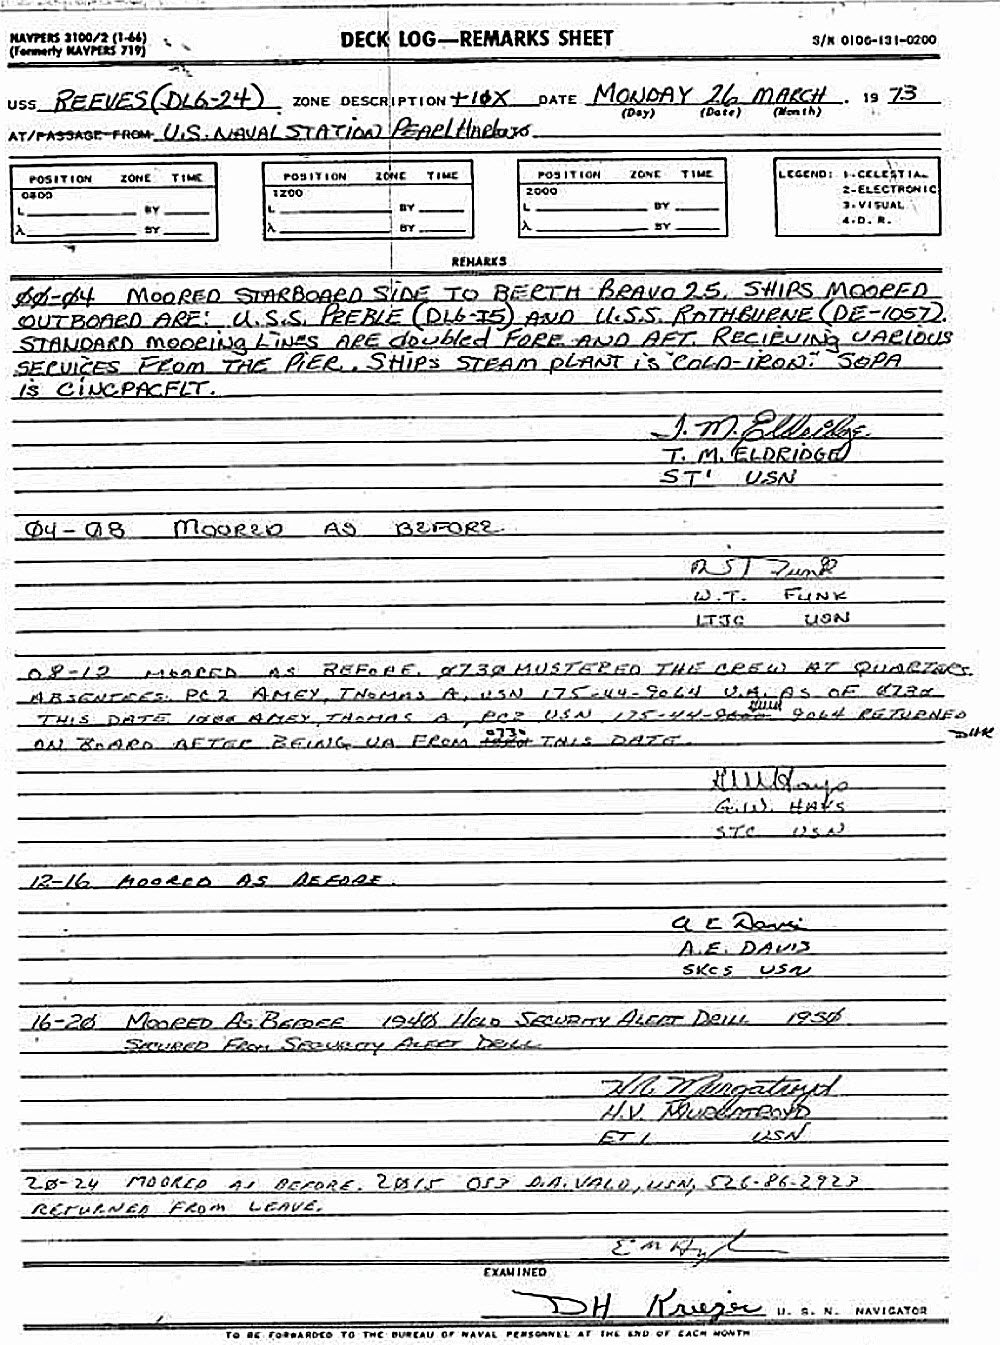 NAVPERS 3100/2 (1-66)
(Formerly NAVPERS 719)
DECK LOG—REMARKS SHEET
S/N 0106-131-0200
USS REEVES (DLG-24) ZONE DESCRIPTION +10X DATE MONDAY 26 MARCH . 1973
(Day) (Date) (Month)
AT/PASSAGE FROM U.S. NAVAL STATION PEARL HARBOR
POSITION ZONE TIME
0800
L BY
λ BY
POSITION ZONE TIME
1200
L BY
λ BY
POSITION ZONE TIME
2000
L BY
λ BY
LEGEND: 1-CELESTIAL
2-ELECTRONIC
3-VISUAL
4-D. R.
REMARKS
00-04 MOORED STARBOARD SIDE TO BERTH BRAVO 25. SHIPS MOORED
OUTBOARD ARE: U.S.S. PREBLE (DLG-15) AND U.S.S. RATHBURNE (DE-1057).
STANDARD MOORING LINES ARE doubled FORE AND AFT. RECIEVING VARIOUS
SERVICES FROM THE PIER. SHIPS STEAM PLANT is "COLD-IRON." SOPA
is CINCPACFLT.
T. M. Eldridge
T. M. ELDRIDGE
ST1 USN
04-08 MOORED AS BEFORE.
W.T. FUNK
LTJG USN
08-12 MOORED AS BEFORE. 0730 MUSTERED THE CREW AT QUARTERS.
ABSENTEES: PC2 AMEY, THOMAS A, USN 175-44-9064 U.A. AS OF 0730
THIS DATE 1000 AMEY, THOMAS A, PC2 USN 175-44-9064 RETURNED
ON BOARD AFTER BEING UA FROM 0730 THIS DATE.
DHK
G.W. Hays
G.W. HAYS
STC USN
12-16 MOORED AS BEFORE.
A E Davis
A.E. DAVIS
SKCS USN
16-20 MOORED AS BEFORE 1940 HELD SECURITY ALERT DRILL 1950
SECURED FROM SECURITY ALERT DRILL
H.V. Murgatroyd
H.V. MURGATROYD
ET1 USN
20-24 MOORED AS BEFORE. 2015 OS3 D.A. VALD, USN, 526-86-2923
RETURNED FROM LEAVE.
EXAMINED
DH Krieger U. S. N. NAVIGATOR
TO BE FORWARDED TO THE BUREAU OF NAVAL PERSONNEL AT THE END OF EACH MONTH